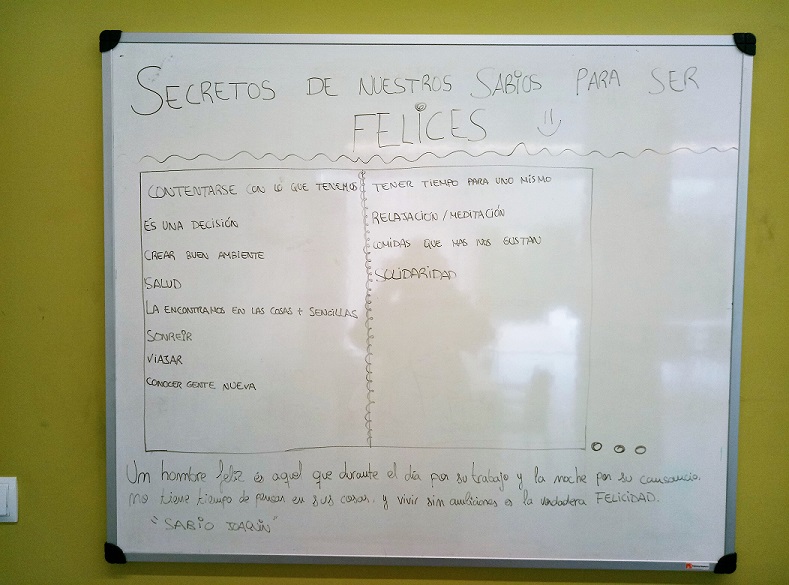 SECRETOS DE NUESTROS SABIOS PARA SER
FELICES
CONTENTARSE CON LO QUE TENEMOS
ES UNA DECISIÓN
CREAR BUEN AMBIENTE
SALUD
LA ENCONTRAMOS EN LAS COSAS + SENCILLAS
SONREIR
VIAJAR
CONOCER GENTE NUEVA
TENER TIEMPO PARA UNO MISMO
RELAJACION / MEDITACIÓN
COMIDAS QUE MAS NOS GUSTAN
SOLIDARIDAD
Un hombre feliz es aquel que durante el día por su trabajo y la noche por su cansancio,
no tiene tiempo de pensar en sus cosas, y vivir sin ambiciones es la verdadera FELICIDAD.
"SABIO JOAQUÍN"